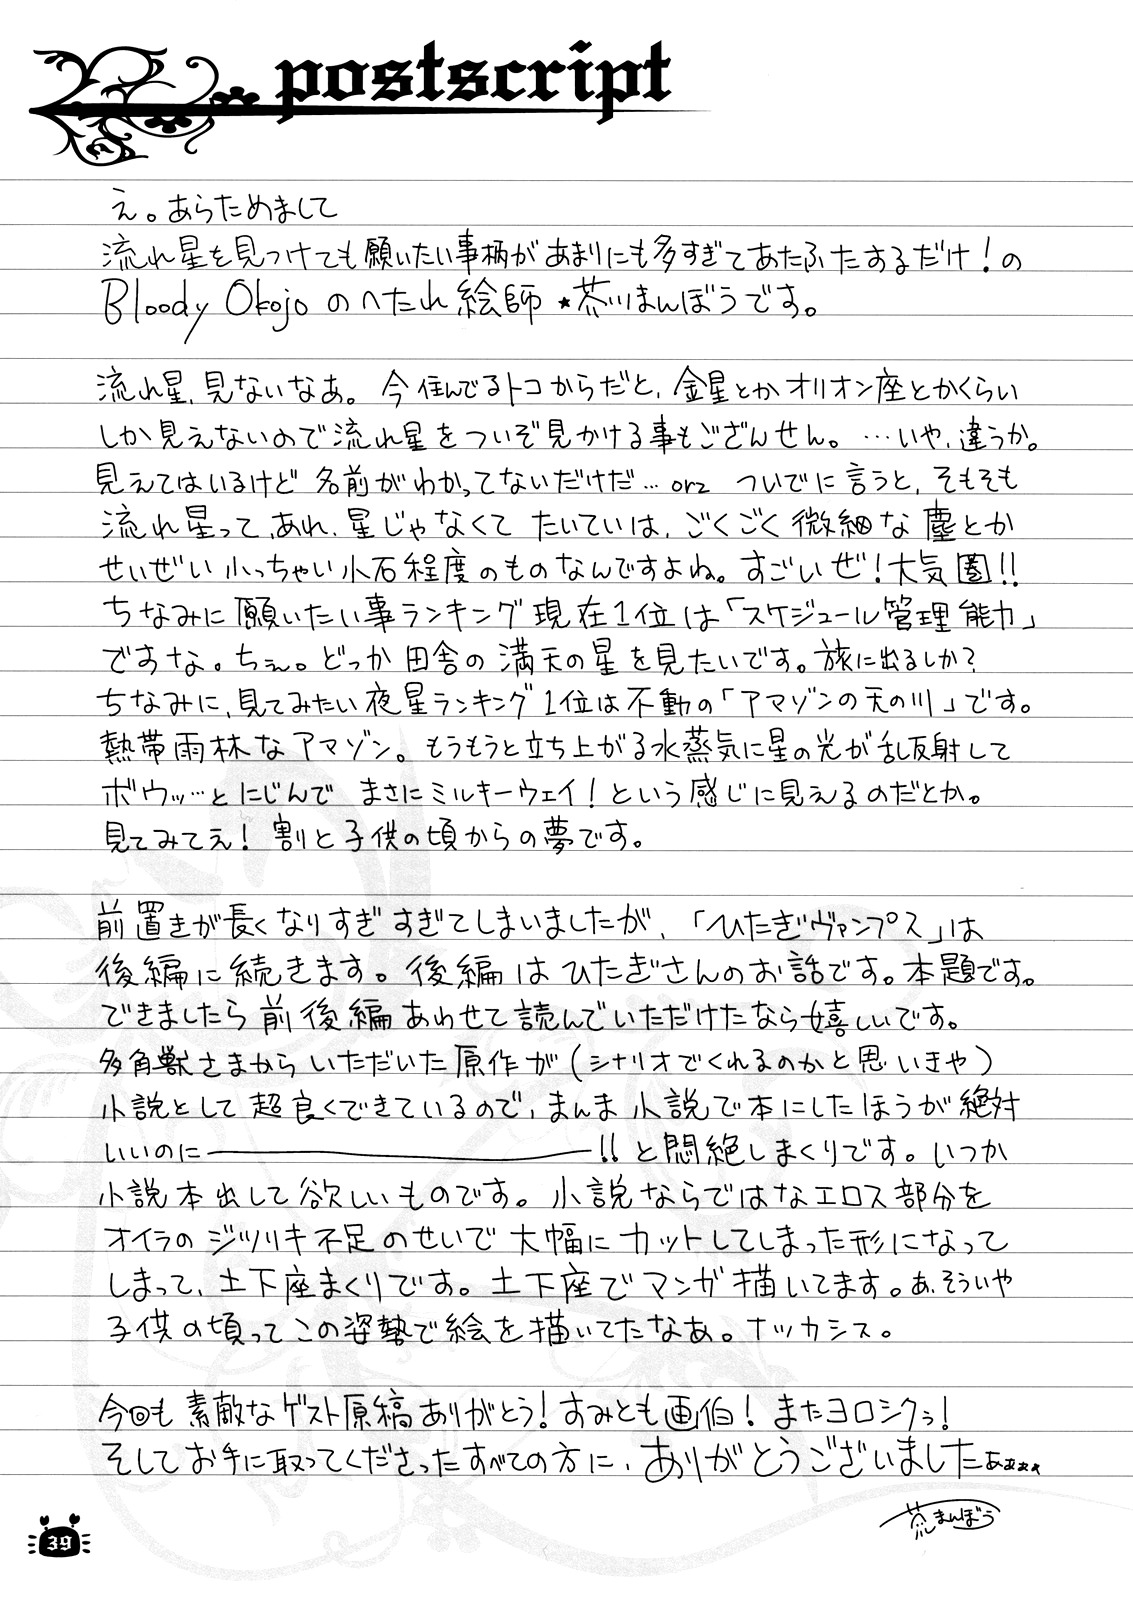 postscript
え。あらためまして
流れ星を見つけても願いたい事柄があまりにも多すぎてあたふたするだけ！の
Bloody Okojo のへたれ絵師★茶川まんぼうです。
流れ星、見ないなあ。今住んでるトコからだと、金星とかオリオン座とかくらい
しか見えないので流れ星をついぞ見かける事もござんせん。…いや、違うか。
見えてはいるけど名前がわかってないだけだ…orz ついでに言うと、そもそも
流れ星って、あれ、星じゃなくて たいていは、ごくごく微細な塵とか
せいぜい小っちゃい小石程度のものなんですよね。すごいぜ！大気圏！！
ちなみに願いたい事ランキング現在1位は「スケジュール管理能力」
ですな。ちぇ。どっか田舎の満天の星を見たいです。旅に出るしか？
ちなみに、見てみたい夜星ランキング1位は不動の「アマゾンの天の川」です。
熱帯雨林なアマゾン。もうもうと立ち上がる水蒸気に星の光が乱反射して
ボウッ…とにじんで まさにミルキーウェイ！という感じに見えるのだとか。
見てみてえ！割と子供の頃からの夢です。
前置きが長くなりすぎすぎてしまいましたが、「ひたぎヴァンプス」は
後編に続きます。後編はひたぎさんのお話です。本題です。
できましたら前後編あわせて読んでいただけたなら嬉しいです。
多角獣さまからいただいた原作が（シナリオでくれるのかと思いきや）
小説として超良くできているので、まんま小説で本にしたほうが絶対
いいのに――――――！！と悶絶しまくりです。いつか
小説本出して欲しいものです。小説ならではなエロス部分を
オイラのジツリキ不足のせいで大幅にカットしてしまった形になって
しまって、土下座まくりです。土下座でマンガ描いてます。あ、そういや
子供の頃ってこの姿勢で絵を描いてたなあ。ナッカシス。
今回も素敵なゲスト原稿ありがとう！すみとも画伯！またヨロシクぅ！
そしてお手に取ってくださったすべての方に、ありがとうございましたぁぁぁぁ
まんぼう
39